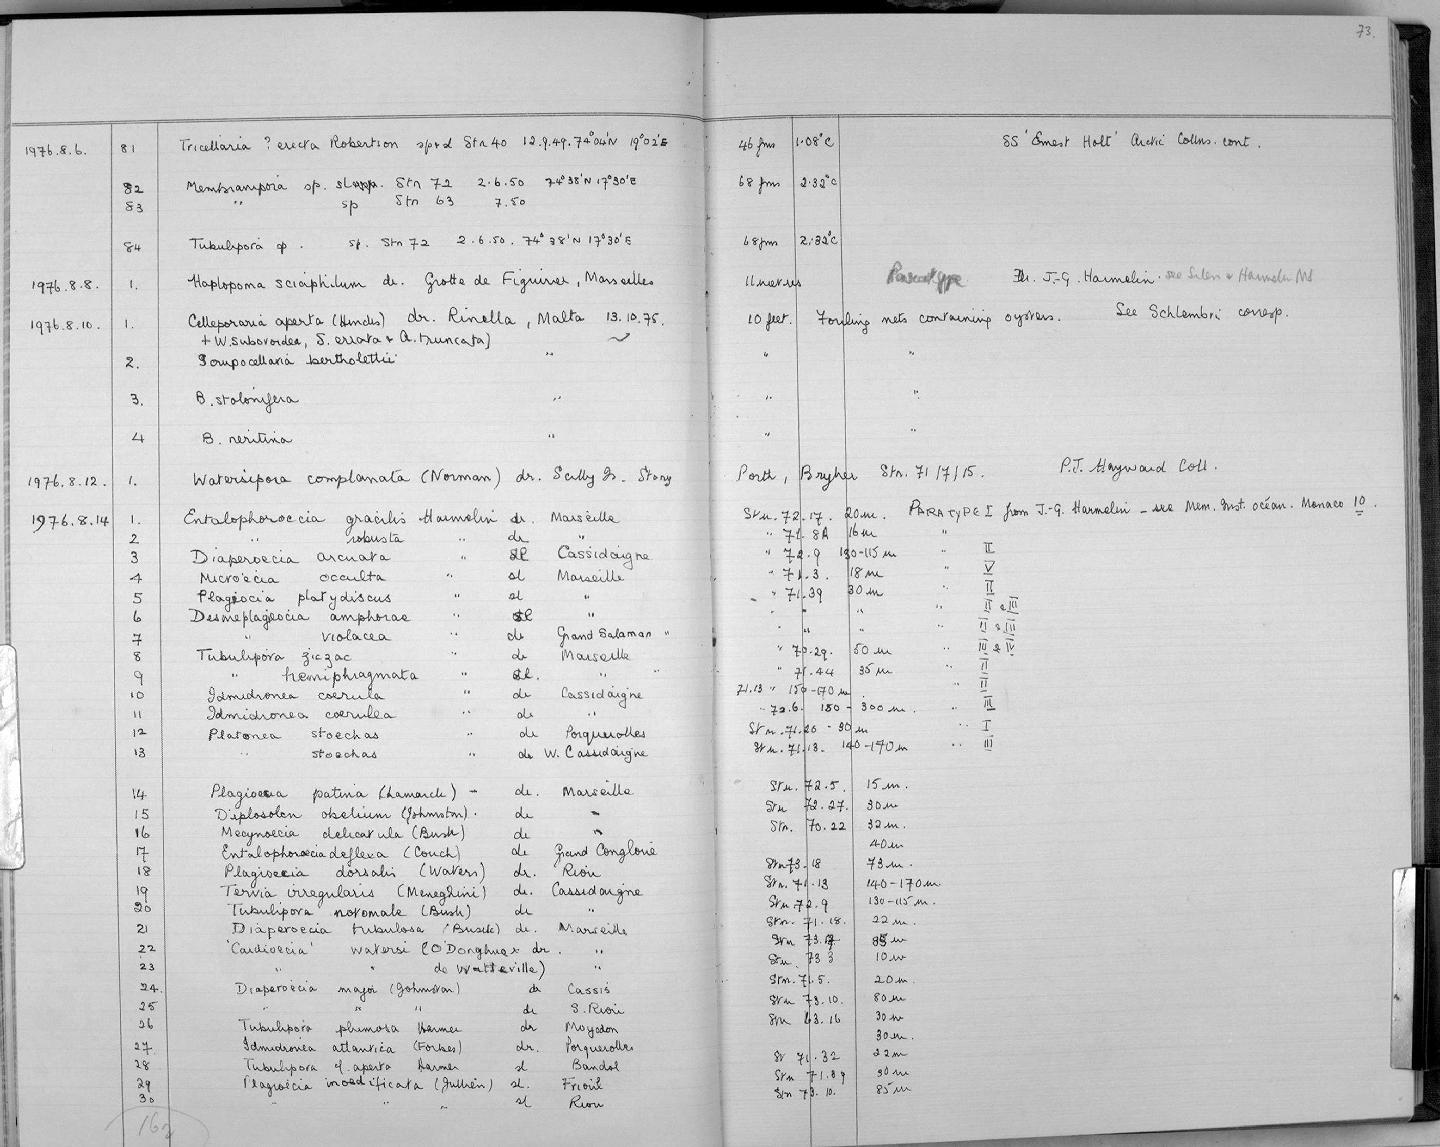 73.
1976.8.6. 81 Tricellaria ? erecta Robertson sp+d Stn 40 12.9.49. 74°04'N 19°02'E 46 fms 1.08°C SS 'Ernest Holt' Arctic Collns. cont.
82 Membranipora sp. Stn 72 2.6.50 74°38'N 17°30'E 68 fms 2.32°C
83 " sp Stn 63 7.50
84 Tubulipora sp. Stn 72 2.6.50. 74°38'N 17°30'E 68 fms 2.32°C
1976.8.8. 1. Haplopoma sciaphilum dr. Grotte de Figuier, Marseilles 11 metres Paratype Dr. J.-G. Harmelin. see Silen & Harmelin MS
1976.8.10. 1. Celleporaria aperta (Hincks) dr. Rinella, Malta 13.10.75. 10 feet. Fouling nets containing oysters. See Schlembri corresp.
+ W. subovoidea, S. errata & A. truncata)
2. Scrupocellaria bertholettii " " "
3. B. stolonifera " " "
4 B. neritina " " "
1976.8.12. 1. Watersipora complanata (Norman) dr. Scilly Is. Stony Porth, Bryher Stn. 71/7/15. P.J. Hayward Coll.
1976.8.14 1. Entalophoroecia gracilis Harmelin dr. Marseille Stn. 72.17. 20m. PARATYPE I from J.-G. Harmelin - see Mem. Inst. océan. Monaco 10.
2 " robusta dr " " 71.8A 16m "
3 Diaperoecia arcuata " sl Cassidaigne " 72.9 130-115m " II
4 Microecia occulta " sl Marseille " 71.3. 18m " V
5 Plagioecia platydiscus " sl " " 71.39 30m " II
6 Desmeplagioecia amphorae sl " " " " " II & III
7 " violacea " dr Grand Salaman " " " " II & III
8 Tubulipora ziczac " dr Marseille " 70.29. 50m " III & IV
9 " hemiphragmata " sl. " " 71.44 35m " II
10 Idmidronea coerula " dr Cassidaigne 71.13 " 150-170m " II
11 Idmidronea coerulea " dr " " 72.6. 180-300m. " III
12 Platonea stoechas " dr Porquerolles Stn. 71.20 - 30m " I
13 " stoechas " dr W. Cassidaigne Stn. 71.13. 140-170m " III
14 Plagioecia patina (Lamarck) - dr. Marseille Stn. 72.5. 15m.
15 Diplosolen obelium (Johnston). dr " Stn 72.27. 30m
16 Mecynoecia delicatula (Busk) dr " Stn. 70.22 32m.
17 Entalophoroecia deflexa (Couch) dr Grand Conglouë 40m
18 Plagioecia dorsalis (Waters) dr. Riou Stn 73.18 73m.
19 Tervia irregularis (Meneghini) dr. Cassidaigne Stn. 71.13 140-170m
20 Tubulipora notomale (Busk) dr " Stn. 72.9 130-115m.
21 Diaperoecia tubulosa (Busk) dr. Marseille Stn. 71.18. 22m.
22 'Cardioecia' watersi (O'Donghue & dr. " Stn 73. 85m
23 " " de Watteville) " Stn. 73 3 10m
24. Diaperoecia major (Johnston) dr Cassis Stn. 71.5. 20m.
25 " " " dr S. Riou Stn 73.10. 80m
26 Tubulipora plumosa Harmer dr Stn 63.16 30m
27. Idmidronea atlantica (Forbes) dr. Porquerolles 30m.
28 Tubulipora cf. aperta Harmer sl Bandol St 71.32 22m
29 Plagioecia inoedificata (Jullien) sl. Frioul Stn 71.89 30m
30 " " " sl Riou Stn 73.10. 85m